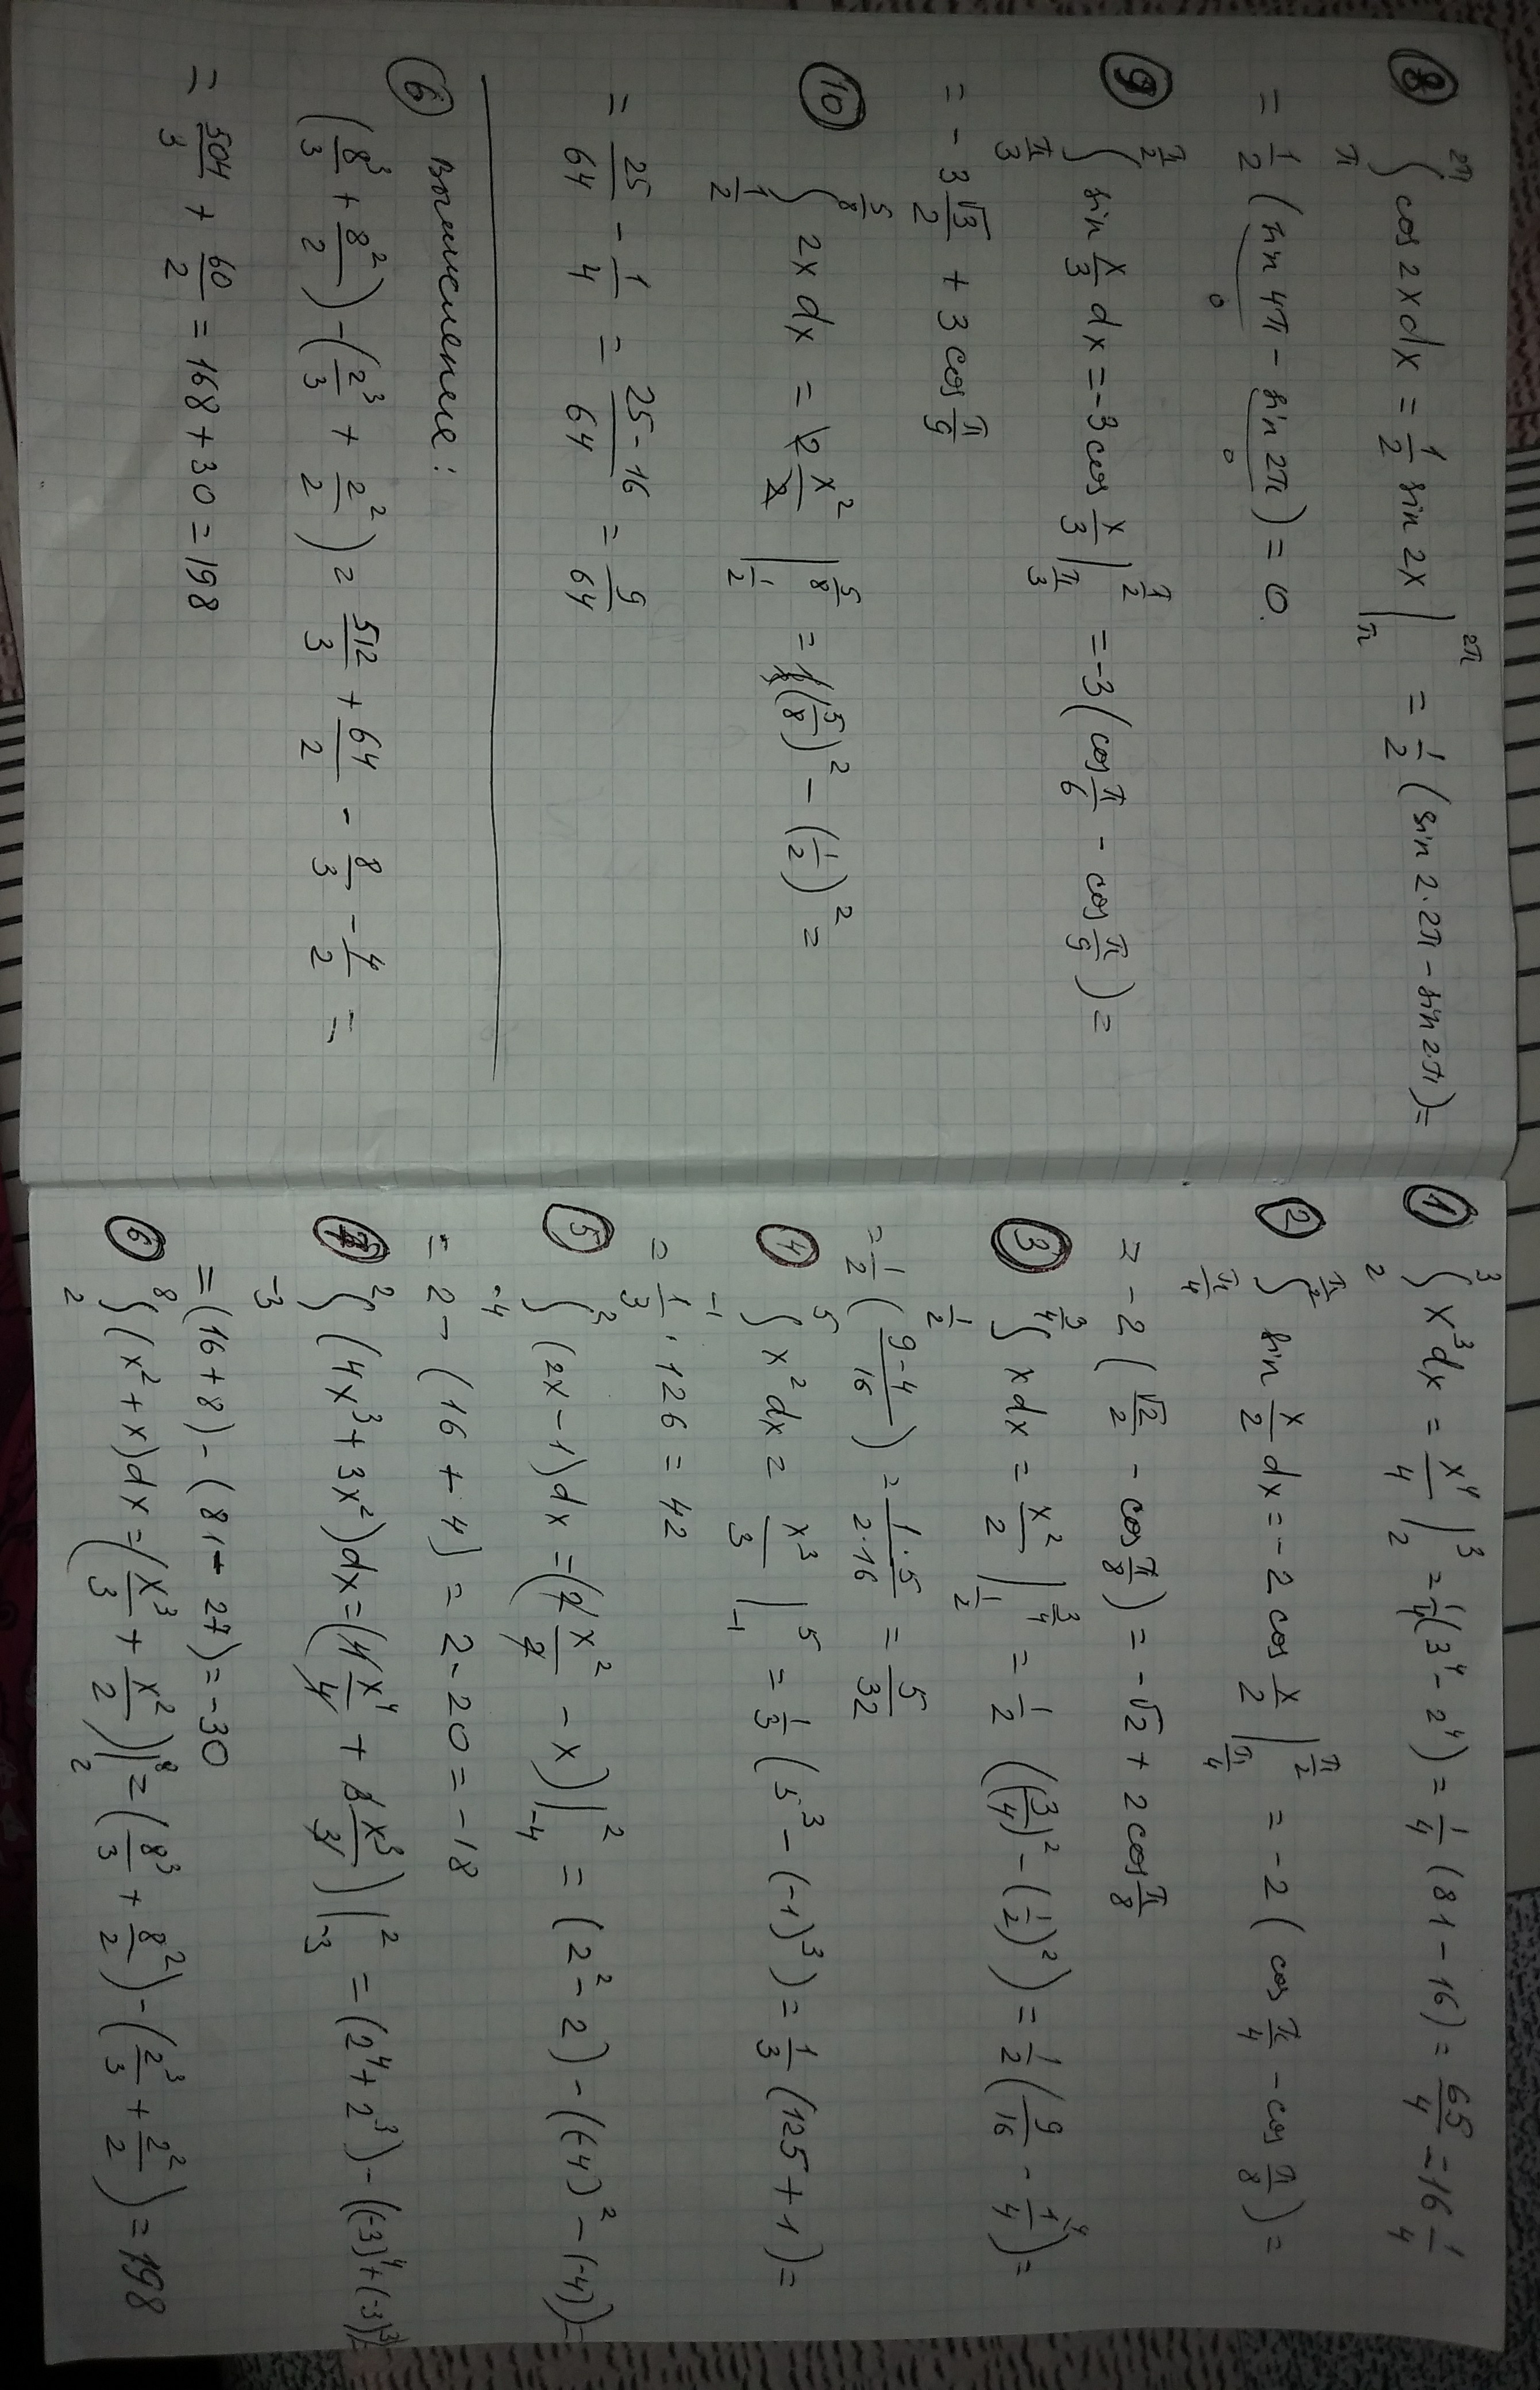 ① ∫₂³ x³dx = x⁴/4 |₂³ = 1/4(3⁴ - 2⁴) = 1/4 (81 - 16) = 65/4 = 16 1/4
② ∫_{π/4}^{π/2} sin x/2 dx = -2 cos x/2 |_{π/4}^{π/2} = -2 ( cos π/4 - cos π/8 ) =
= -2 ( √2/2 - cos π/8 ) = -√2 + 2 cos π/8
③ ∫_{1/2}^{3/4} x dx = x²/2 |_{1/2}^{3/4} = 1/2 ((3/4)² - (1/2)²) = 1/2 ( 9/16 - 1/4 ) =
= 1/2 ( (9-4)/16 ) = (1·5)/(2·16) = 5/32
④ ∫₋₁⁵ x² dx = x³/3 |₋₁⁵ = 1/3 ( 5³ - (-1)³ ) = 1/3 (125 + 1) =
= 1/3 · 126 = 42
⑤ ∫₋₄² (2x - 1)dx = (2 x²/2 - x)|₋₄² = (2² - 2) - ((-4)² - (-4)) =
= 2 - (16 + 4) = 2 - 20 = -18
⑦ ∫₋₃² (4x³ + 3x²)dx = (4 x⁴/4 + 3 x³/3)|₋₃² = (2⁴ + 2³) - ((-3)⁴ + (-3)³) =
= (16 + 8) - (81 - 27) = -30
⑥ ∫₂⁸ (x² + x)dx = (x³/3 + x²/2)|₂⁸ = (8³/3 + 8²/2) - (2³/3 + 2²/2) = 198
⑧ ∫_π^{2π} cos 2x dx = 1/2 sin 2x |_π^{2π} = 1/2 (sin 2·2π - sin 2π) =
= 1/2 (sin 4π - sin 2π) = 0.
0 0
⑨ ∫_{π/3}^{π/2} sin x/3 dx = -3 cos x/3 |_{π/3}^{π/2} = -3 (cos π/6 - cos π/9) =
= -3 √3/2 + 3 cos π/9
⑩ ∫_{1/2}^{5/8} 2x dx = 2 x²/2 |_{1/2}^{5/8} = 1(5/8)² - (1/2)² =
= 25/64 - 1/4 = (25-16)/64 = 9/64
⑥ вычисление:
(8³/3 + 8²/2) - (2³/3 + 2²/2) = 512/3 + 64/2 - 8/3 - 4/2 =
= 504/3 + 60/2 = 168 + 30 = 198